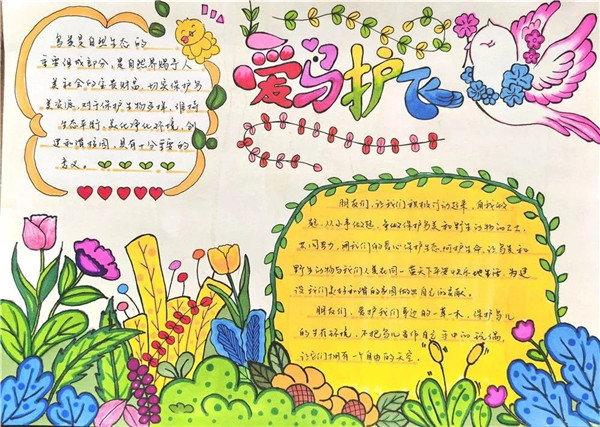 爱鸟护飞
鸟类是自然生态的
重要组成部分,是自然界赐予人
类社会的宝贵财富,切实保护鸟
类资源,对于保护生物多样,维持
生态平衡,美化净化环境,创
建和谐校园,具有十分重要的
意义。
朋友们,让我们积极行动起来,自我做
起,从小事做起,争做保护鸟类和野生动物的卫士,
共同努力,用我们的爱心保护生态,呵护生命,让鸟类和
野生动物与我们人类在同一蓝天下平安快乐地生活,为建
设我们美好和谐的家园做出自己的贡献。
朋友们,爱护我们身边的一草一木,保护鸟儿
的生存环境,不把鸟儿当作自己手中的玩偶,
让它们拥有一个自由的天空。